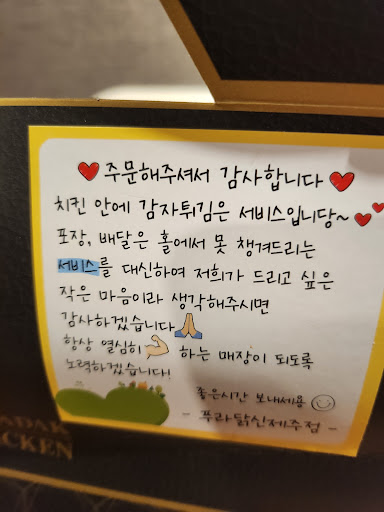 주문해주셔서 감사합니다
치킨 안에 감자튀김은 서비스입니당~
포장, 배달은 홀에서 못 챙겨드리는
서비스를 대신하여 저희가 드리고 싶은
작은 마음이라 생각해주시면
감사하겠습니다
항상 열심히 하는 매장이 되도록
노력하겠습니다!
좋은시간 보내세용
- 푸라닭신제주점 -
ADAK
CKEN